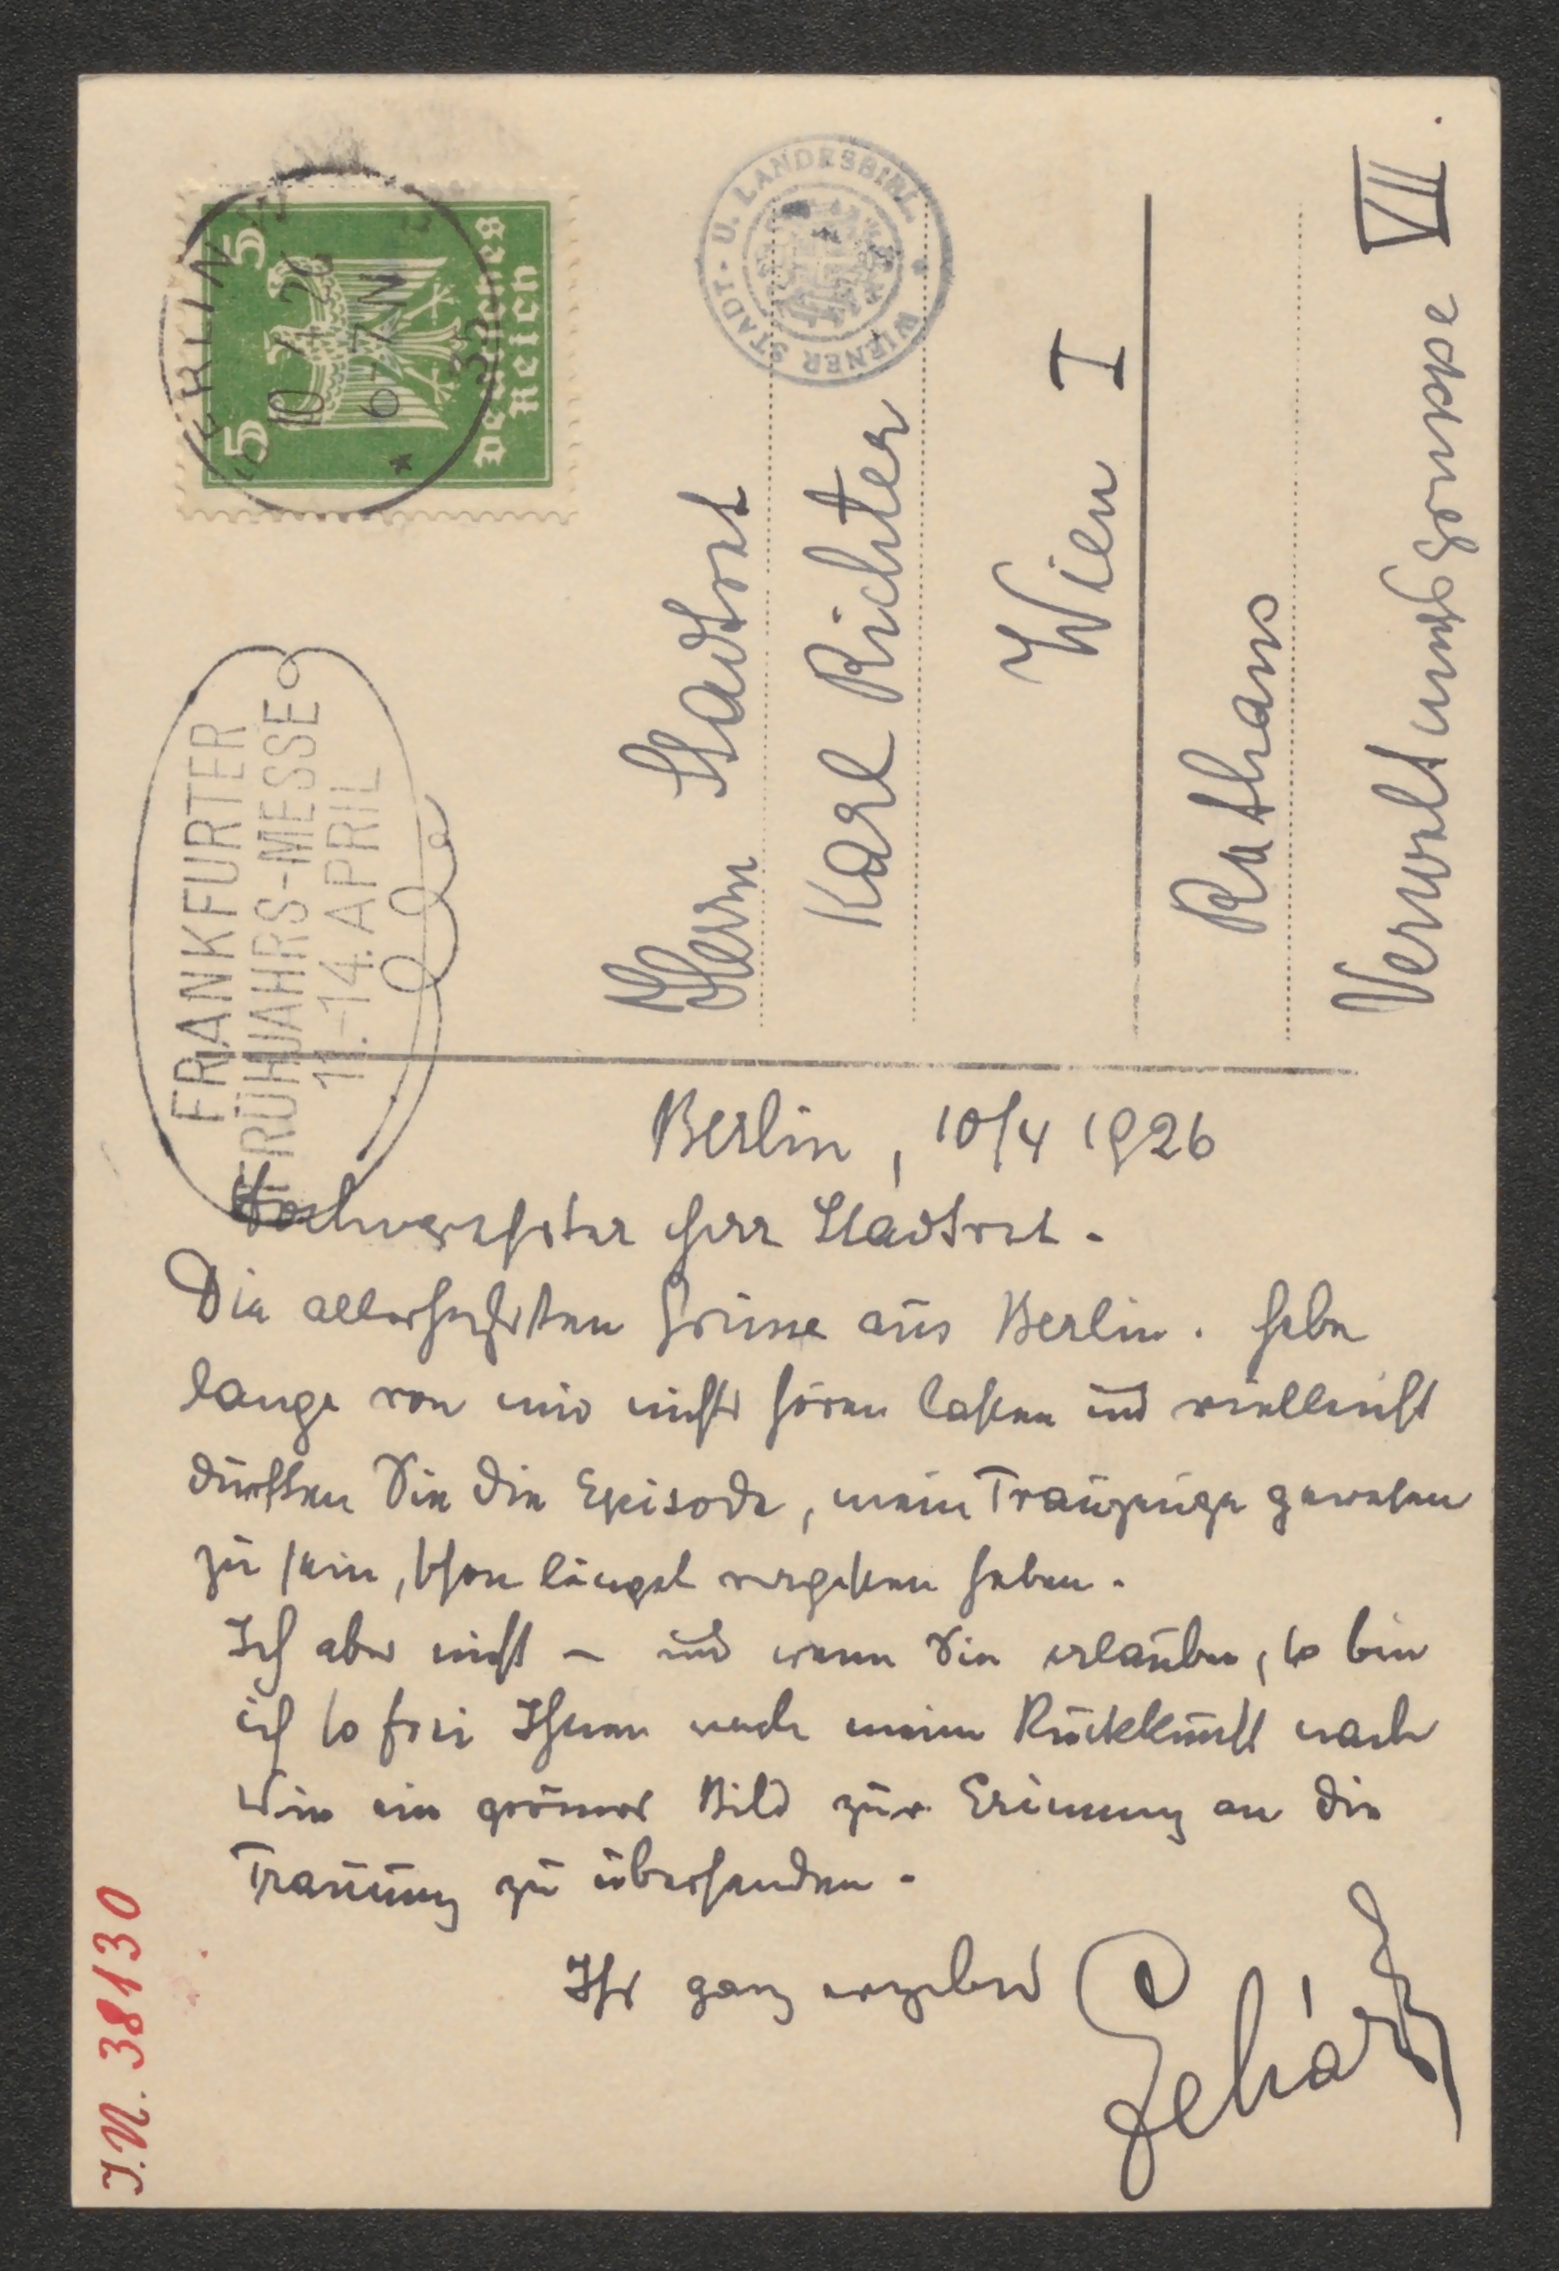 Berlin, 10/4 1926
Hochverehrter Herr Stadtrat.
Die allerherzlichsten Grüsse aus Berlin. Habe
lange von mir nichts hören lassen und vielleicht
dürften Sie die Episode, mein Trauzeuge gewesen
zu sein, schon längst vergessen haben.
Ich aber nicht – und wenn Sie erlauben, so bin
ich so frei Ihnen nach meiner Rückkunft nach
Wien ein grösseres Bild zur Erinnerung an die
Trauung zu übersenden.
Ihr ganz ergebener
Lehár
Herrn Stadtrat
Karl Richter
Wien I
Rathaus
Verwaltungsgruppe VII.
FRANKFURTER
FRÜHJAHRS-MESSE
11.-14. APRIL
BERLIN
10 4 26
6-7 N
5 5
Deutsches
Reich
WIENER STADT- U. LANDESBIBL.
I.N. 38130